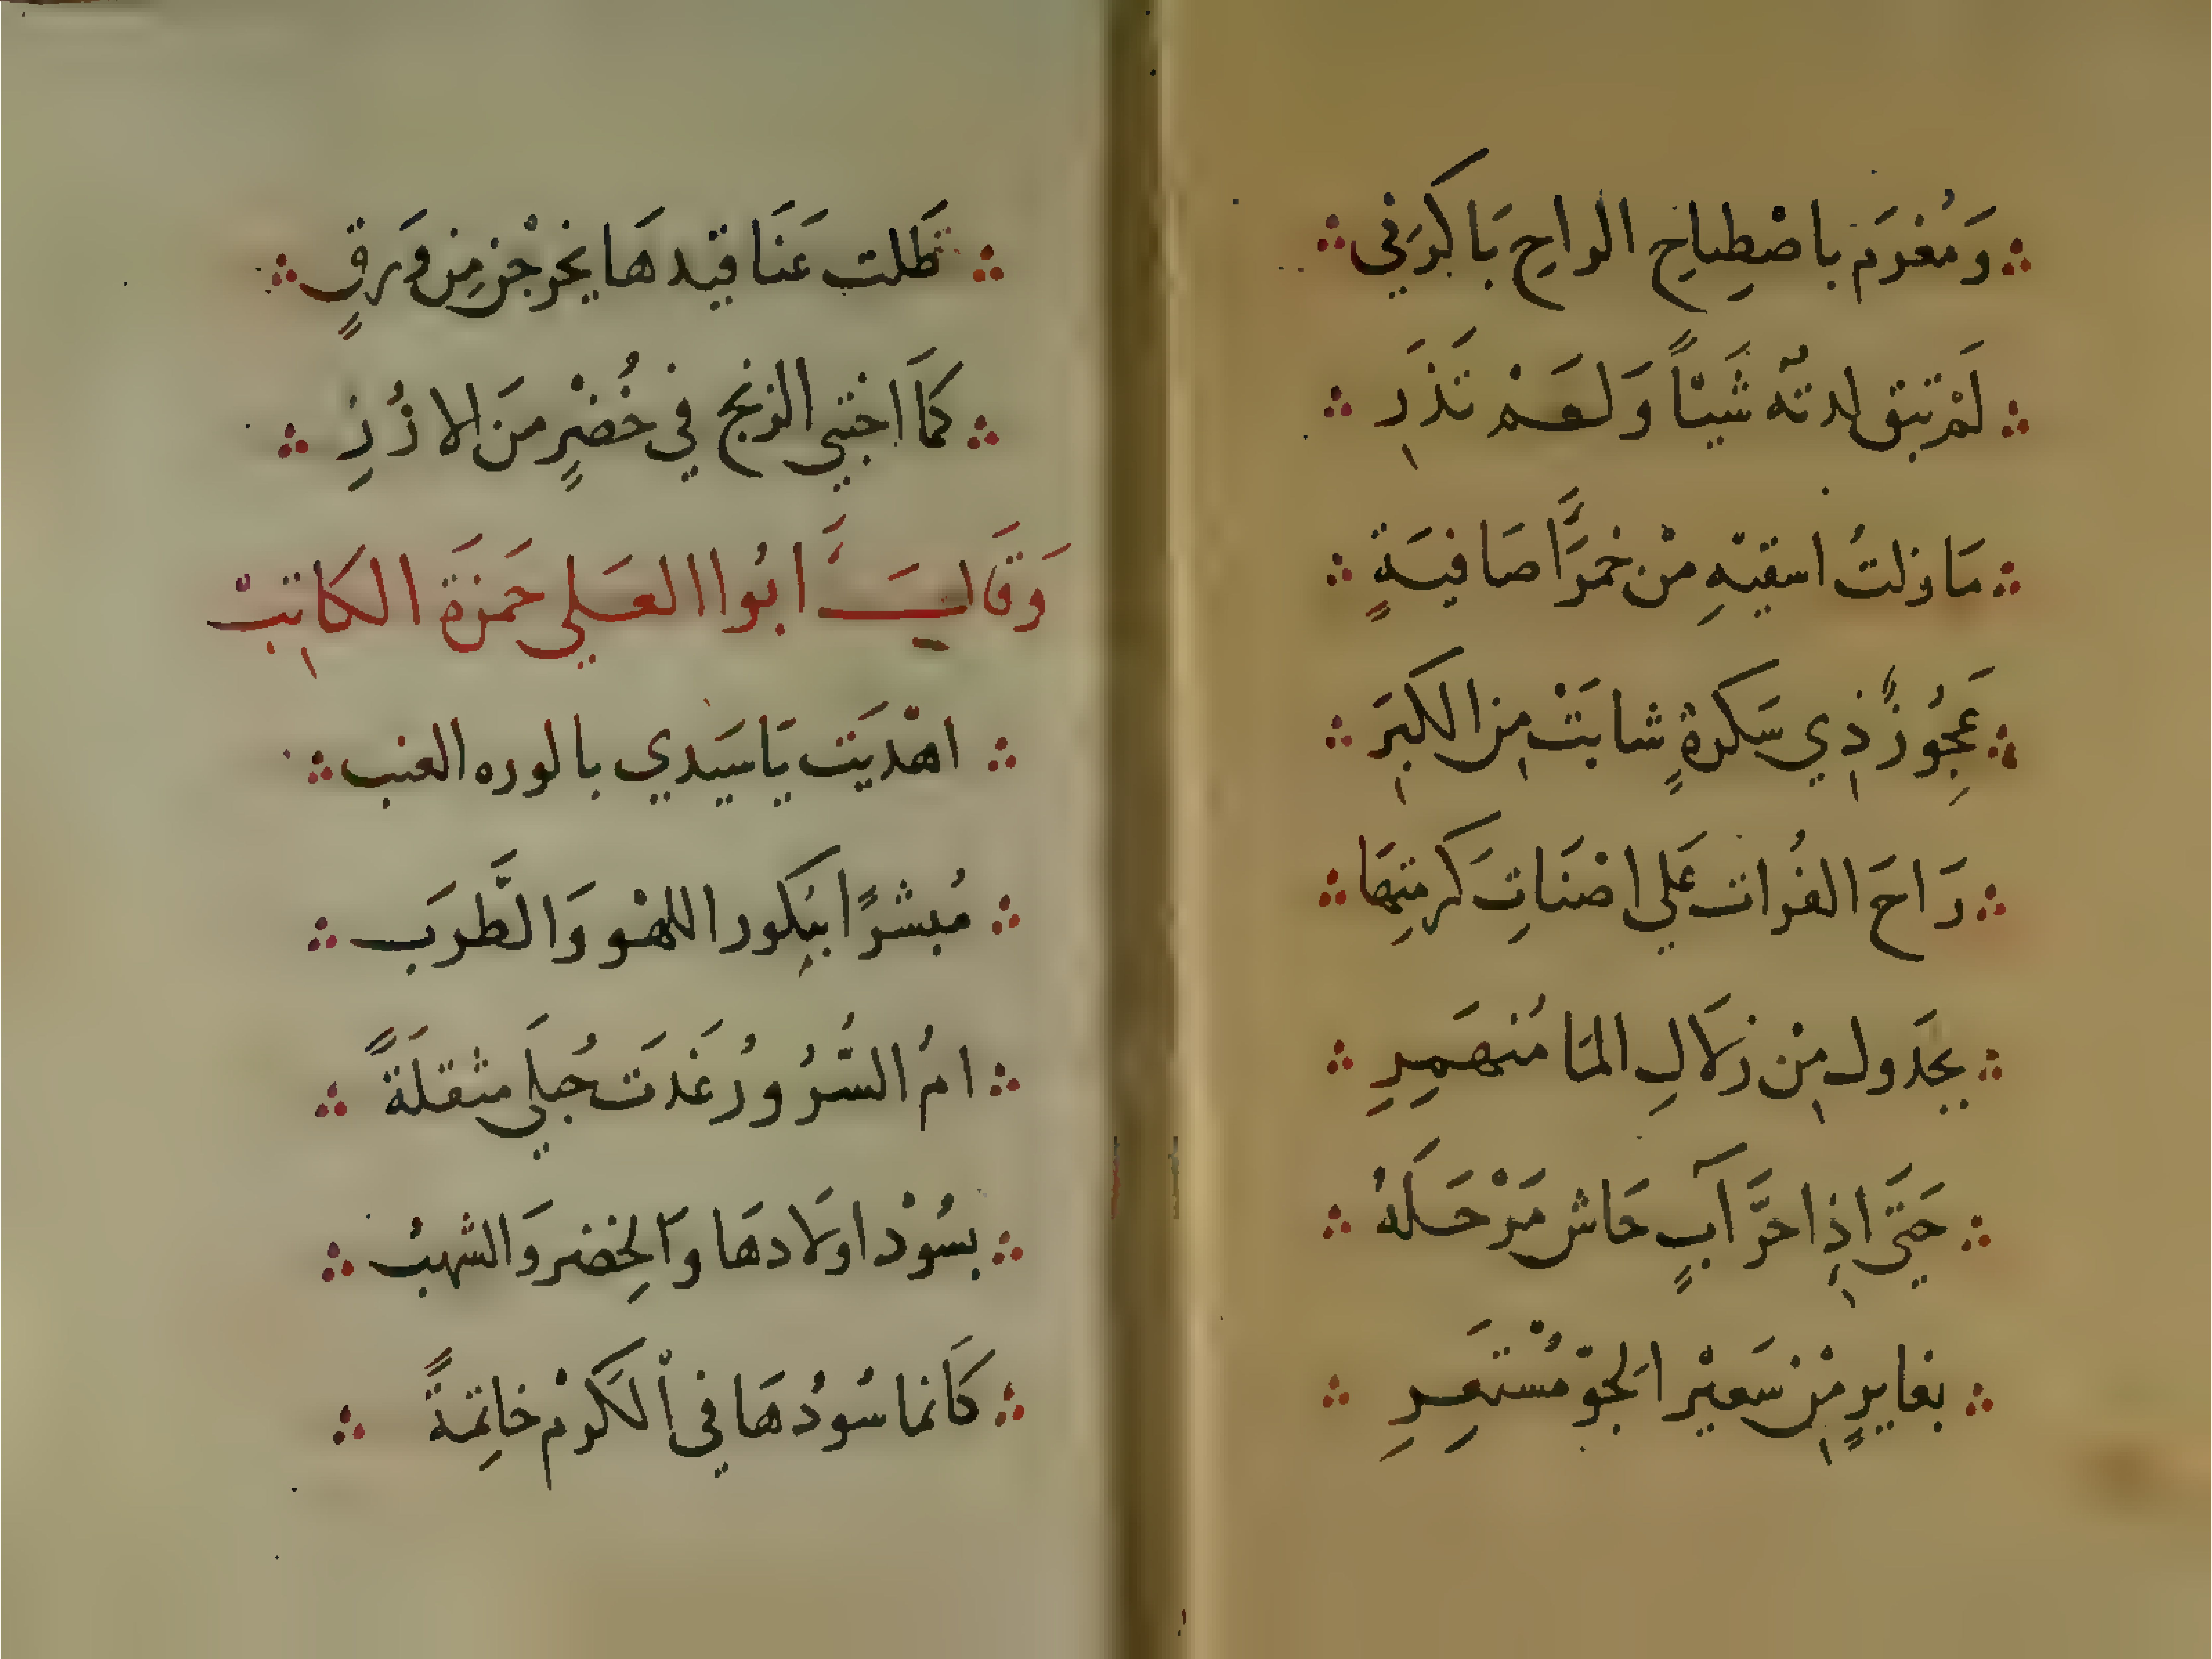 وَمُغرَم باصْطِباحِ الراحِ بَاكرَني
لَمْ تبق لدتهُ شَيئاً وَلَعَمْ تَذَرِ
مَازلتُ اسقيهِ مْن خمرًّا صَافيَةٍ
عَجُوزًذِي سَكرةٍ شابَتْ مِن الكبَرِ
رَاحَ الفُرات عَلي اصْنَاتِ كَرمتِهَا
بجَدَول مِنْ زلَالِ المَا مُنهَمِرِ
حَتيَّ اذِا حَرَّ آبٍ حَاش مَرْحَلَهُ
بغايرٍ مِنْ سَعيْر الجَوّ مُسْتَعِرِ
ظَلت عَنَاقيدهَا يخرْجْن مِن وَرقٍ
كَمَا اختبَي الزنج في خُضْرٍ منَ الازُرِ
وَقَالَ ابُوا العَلي حَمزَةَ الكَاتِبْ
اهْدَيَت يَا سَيَدي بالوره العنب
مُبشرًا ببِكور اللهْو وَالَّطرَب
امُ السّرُورُ غَدَت حُبلَي مثقلَةً
بسُوْد اولَادهَا وَالخِضر وَالشهبُ
كَأَنما سُودُهَا في اْلكَرْم خاتِمَةً